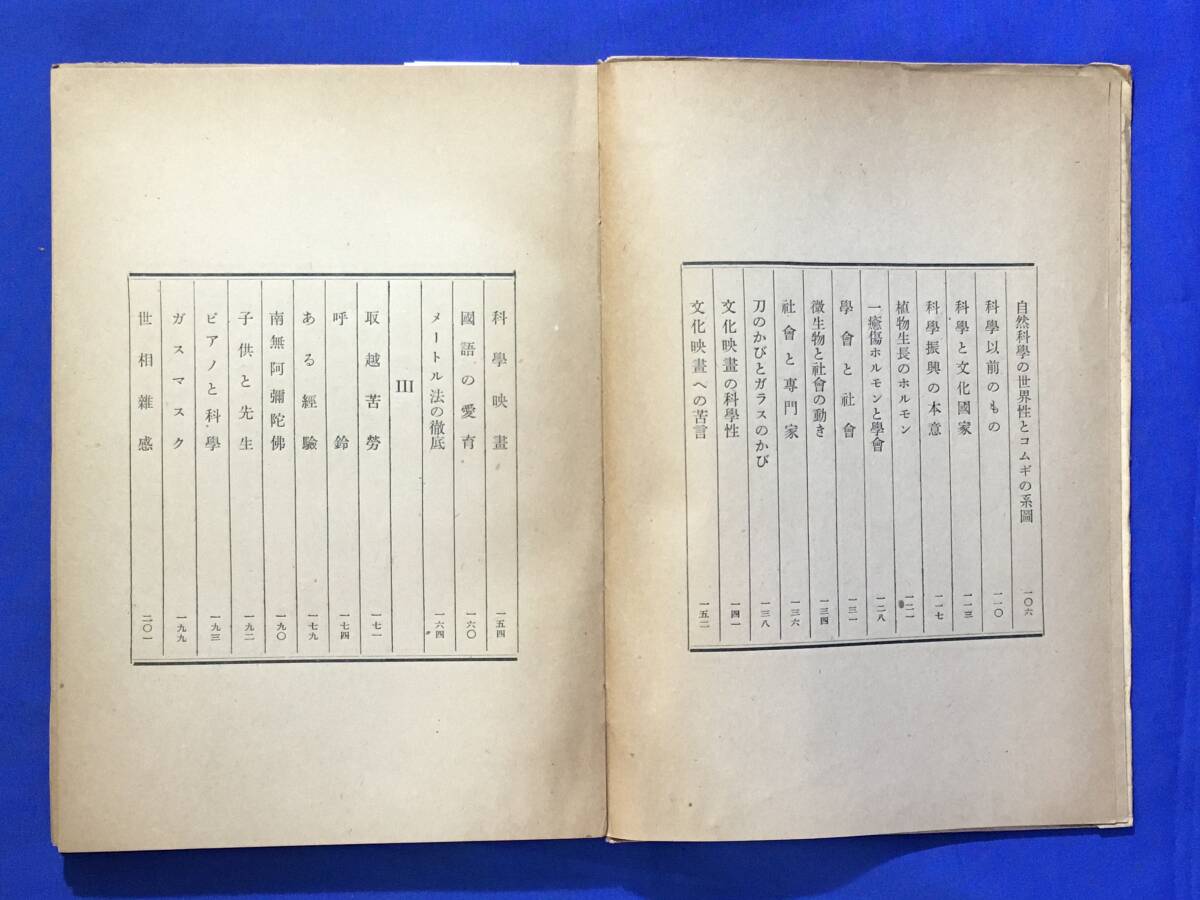 自然科學の世界性とコムギの系圖 一〇六
科學以前のもの 一一〇
科學と文化國家 一一三
科學振興の本意 一一七
植物生長のホルモン 一二一
一癒傷ホルモンと學會 一二八
學會と社會 一三一
微生物と社會の動き 一三四
社會と専門家 一三六
刀のかびとガラスのかび 一三八
文化映畫の科學性 一四一
文化映畫への苦言 一五二
科學映畫 一五四
國語の愛育 一六〇
メートル法の徹底 一六四
III
取越苦勞 一七一
呼鈴 一七四
ある經驗 一七九
南無阿彌陀佛 一九〇
子供と先生 一九二
ピアノと科學 一九三
ガスマスク 一九九
世相雜感 二〇一